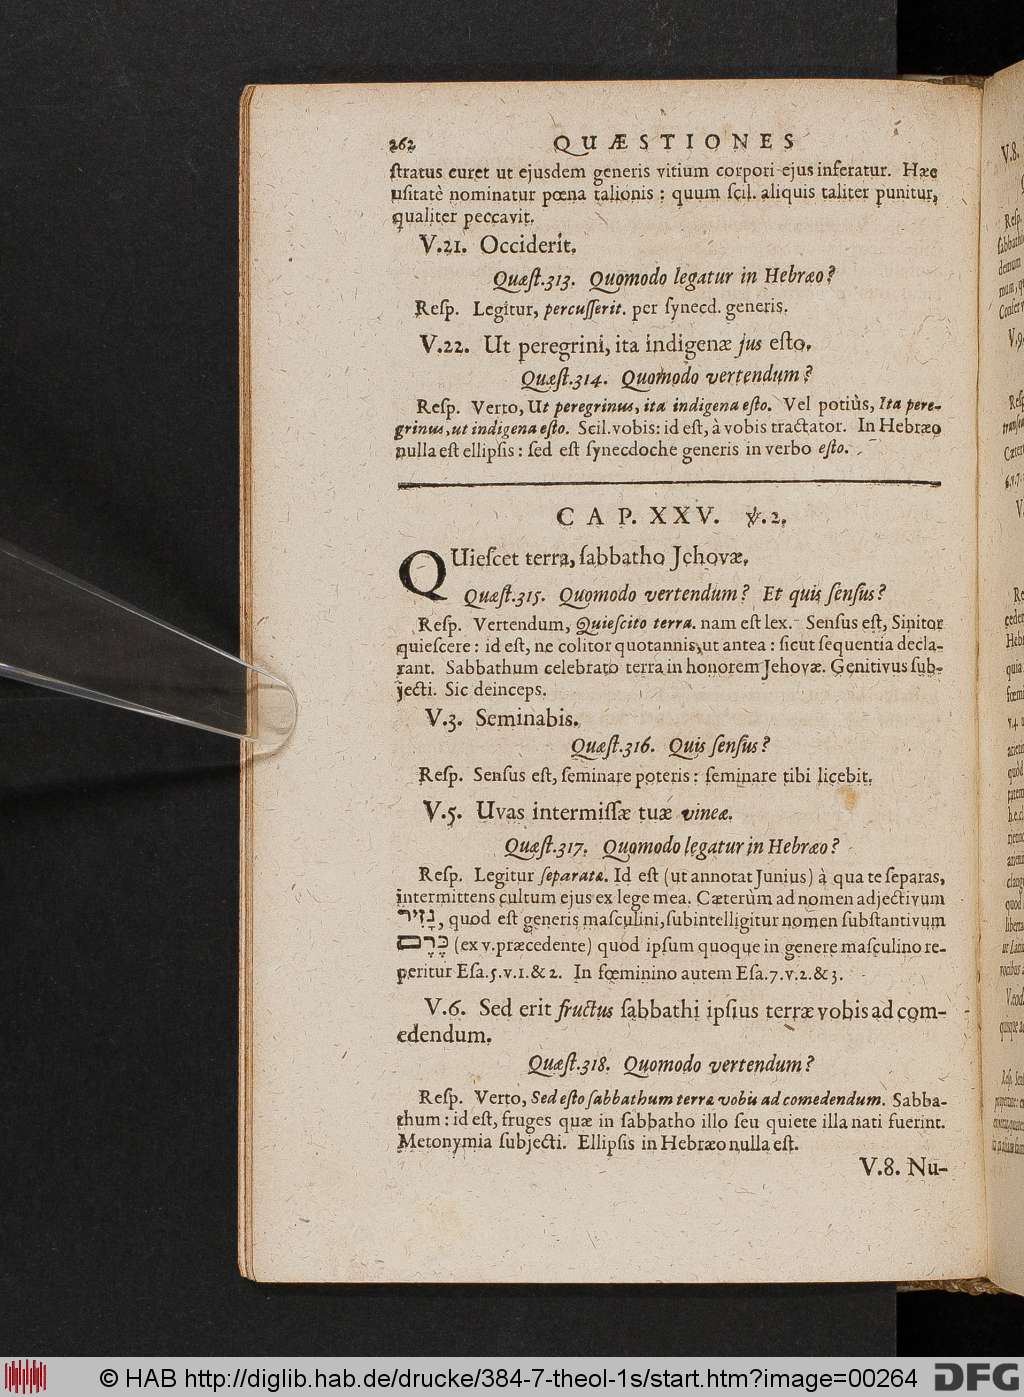 262 QUÆSTIONES
ſtratus curet ut ejusdem generis vitium corpori ejus inferatur. Hæc
uſitatè nominatur pœna talionis : quum ſcil. aliquis taliter punitur,
qualiter peccavit.
V.21. Occiderit.
Quæſt.313. Quomodo legatur in Hebræo?
Reſp. Legitur, percuſſerit. per ſynecd. generis.
V.22. Ut peregrini, ita indigenæ jus eſto.
Quæſt.314. Quomodo vertendum?
Reſp. Verto, Ut peregrinus, ita indigena eſto. Vel potiùs, Ita pere-
grinus, ut indigena eſto. Scil. vobis: id eſt, à vobis tractator. In Hebræo
nulla eſt ellipſis : ſed eſt ſynecdoche generis in verbo eſto.
CAP. XXV. ℣.2.
QUieſcet terra, ſabbatho Jehovæ.
Quæſt.315. Quomodo vertendum? Et quis ſenſus?
Reſp. Vertendum, Quieſcito terra. nam eſt lex. Senſus eſt, Sinitor
quieſcere : id eſt, ne colitor quotannis, ut antea : ſicut ſequentia decla-
rant. Sabbathum celebrato terra in honorem Jehovæ. Genitivus ſub-
jecti. Sic deinceps.
V.3. Seminabis.
Quæſt.316. Quis ſenſus?
Reſp. Senſus eſt, ſeminare poteris : ſeminare tibi licebit.
V.5. Uvas intermiſſæ tuæ vineæ.
Quæſt.317. Quomodo legatur in Hebræo?
Reſp. Legitur ſeparatæ. Id eſt (ut annotat Junius) à qua te ſeparas,
intermittens cultum ejus ex lege mea. Cæterùm ad nomen adjectivum
נָזִיר, quod eſt generis maſculini, ſubintelligitur nomen ſubſtantivum
כֶּרֶם (ex v. præcedente) quod ipſum quoque in genere maſculino re-
peritur Eſa.5.v.1.& 2. In fœminino autem Eſa.7.v.2.& 3.
V.6. Sed erit fructus ſabbathi ipſius terræ vobis ad com-
edendum.
Quæſt.318. Quomodo vertendum?
Reſp. Verto, Sed eſto ſabbathum terræ vobis ad comedendum. Sabba-
thum : id eſt, fruges quæ in ſabbatho illo ſeu quiete illa nati fuerint.
Metonymia ſubjecti. Ellipſis in Hebræo nulla eſt.
V.8. Nu-
© HAB http://diglib.hab.de/drucke/384-7-theol-1s/start.htm?image=00264 DFG